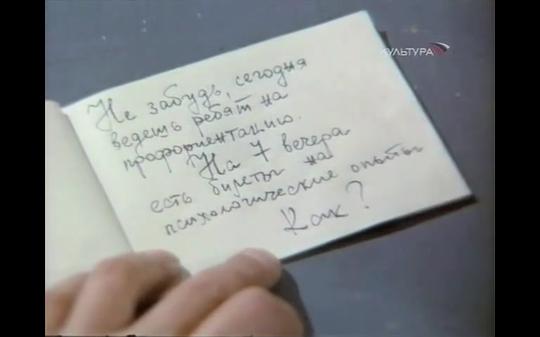 КУЛЬТУРА
Не забудь, сегодня
ведешь ребят на
профориентацию.
На 7 вечера
есть билеты на
психологические опыты
Как?